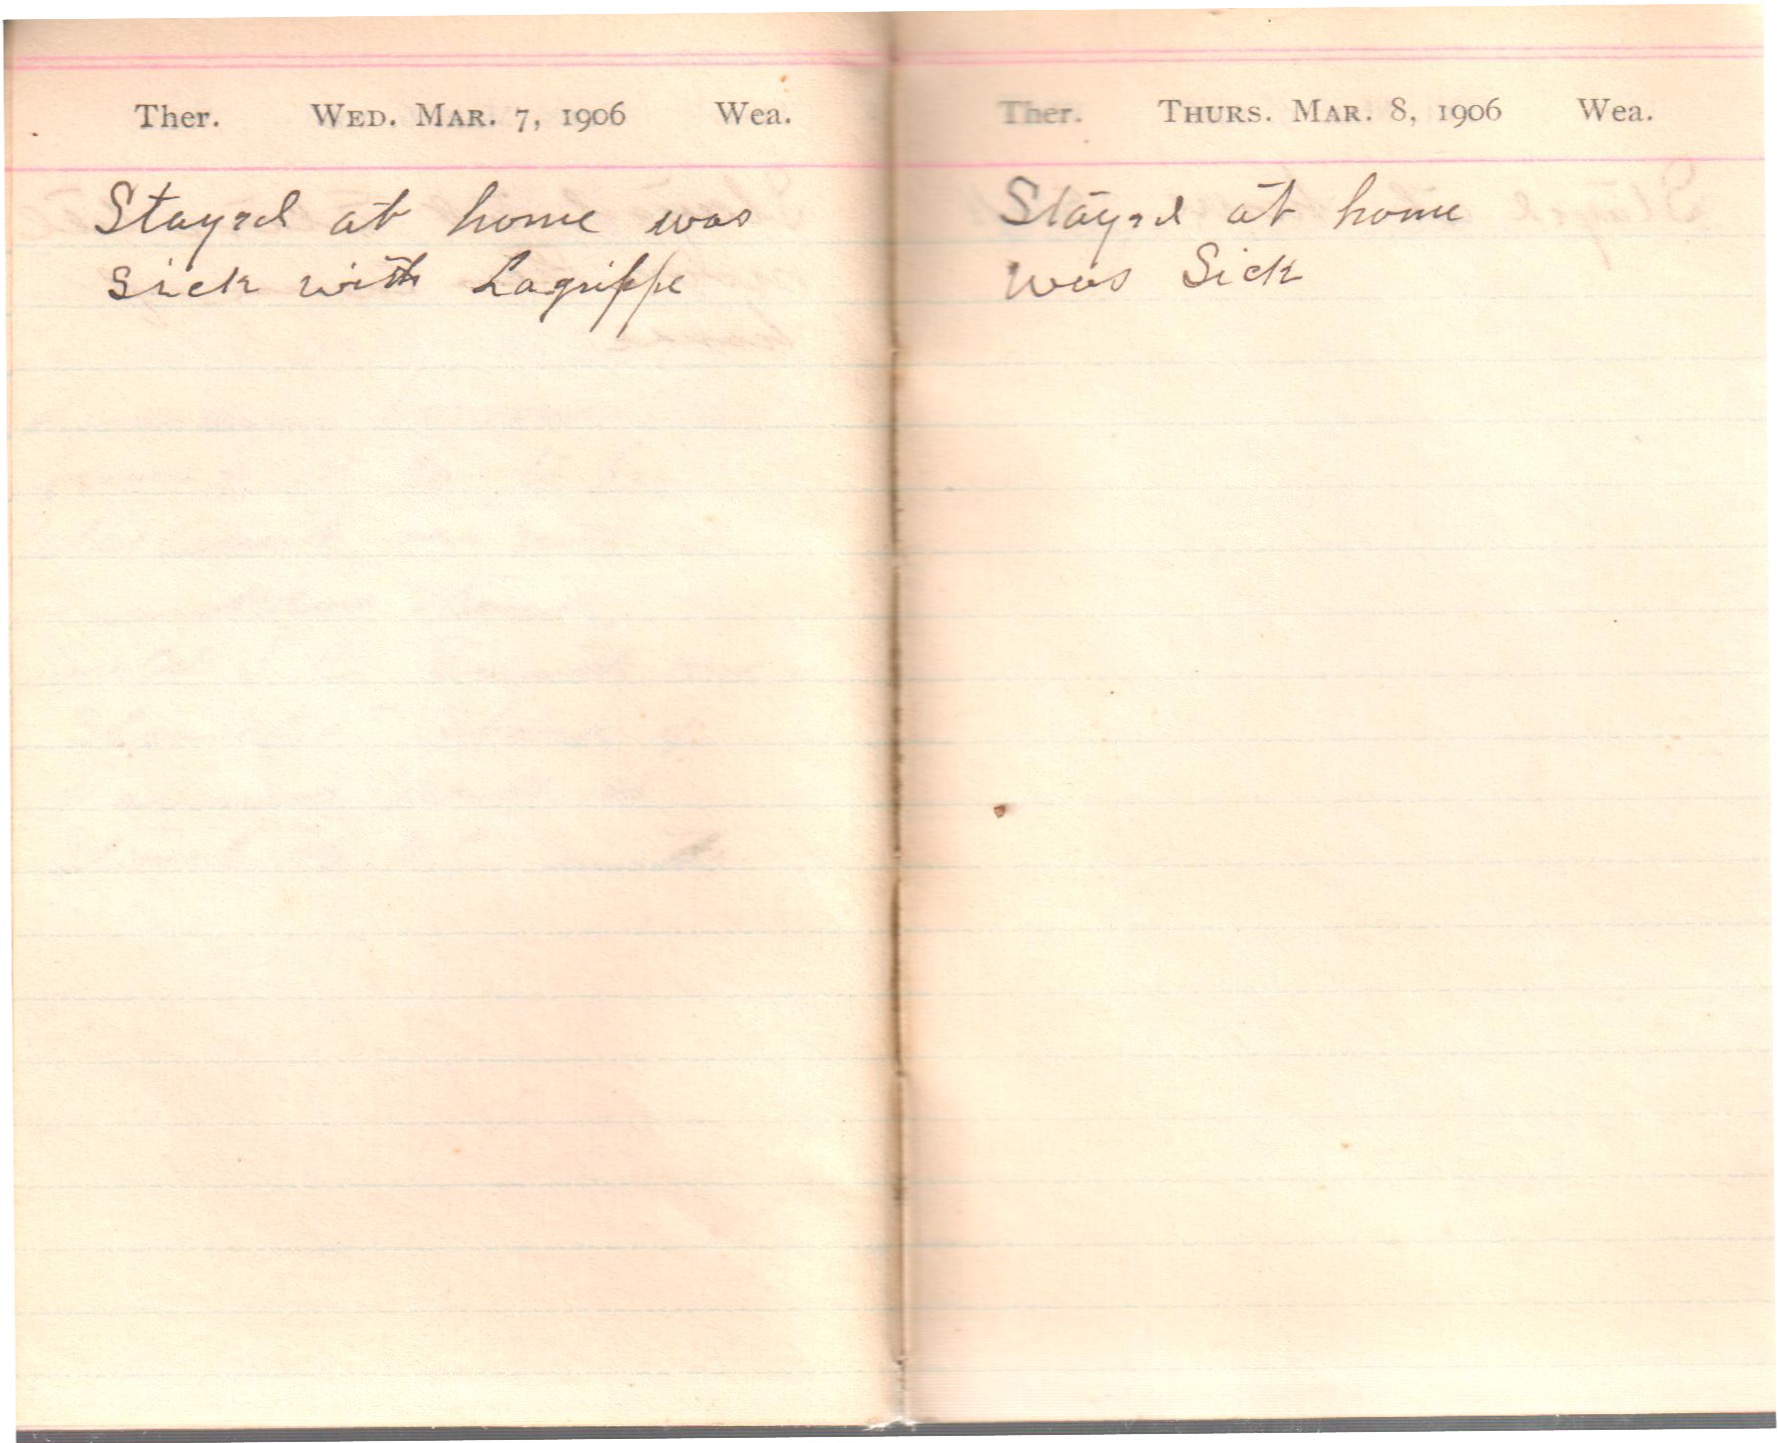 Ther. Wed. Mar. 7, 1906 Wea.
Stayed at home was
sick with Lagrippe
Ther. Thurs. Mar. 8, 1906 Wea.
Stayed at home
was Sick